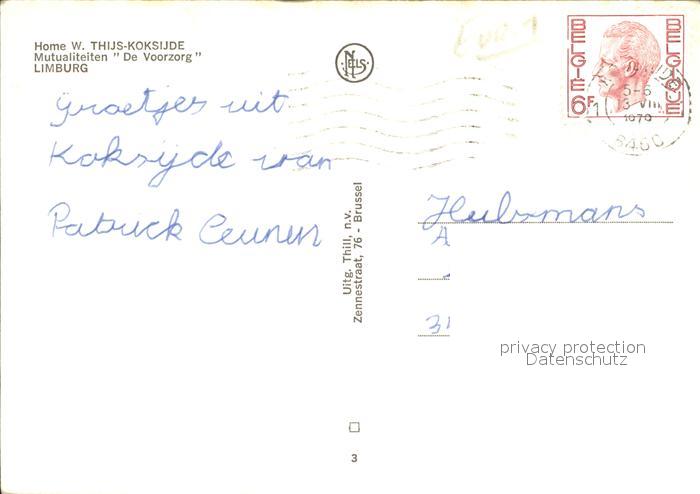 Home W. THIJS-KOKSIJDE
Mutualiteiten " De Voorzorg "
LIMBURG
NELS
BELGIE
BELGIQUE
6F
5-6
VIII
groetjes uit
Koksijde van
Patrick Ceunen
Uitg. Thill, n.v.
Zennestraat, 76 - Brussel
Hulsmans
A
3
privacy protection
Datenschutz
3